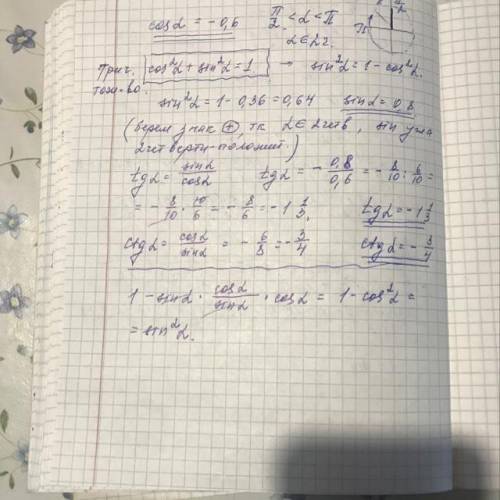 cosα = -0,6   π/2 < α < π
α ∈ 2ч.
Триг. cos²α + sin²α = 1 → sin²α = 1 - cos²α.
тожд-во.
sin²α = 1 - 0,36 = 0,64   sinα = 0,8
(берем знак ⊕, тк α ∈ 2 четв, sin угла
2 четверти - положит.)
tgα = sinα/cosα   tgα = - 0,8/0,6 = - 8/10 : 6/10 =
= - 8/10 · 10/6 = - 8/6 = -1 1/3.   tgα = -1 1/3
ctgα = cosα/sinα = - 6/8 = - 3/4   ctgα = - 3/4
1 - sinα · cosα/sinα · cosα = 1 - cos²α =
= sin²α.